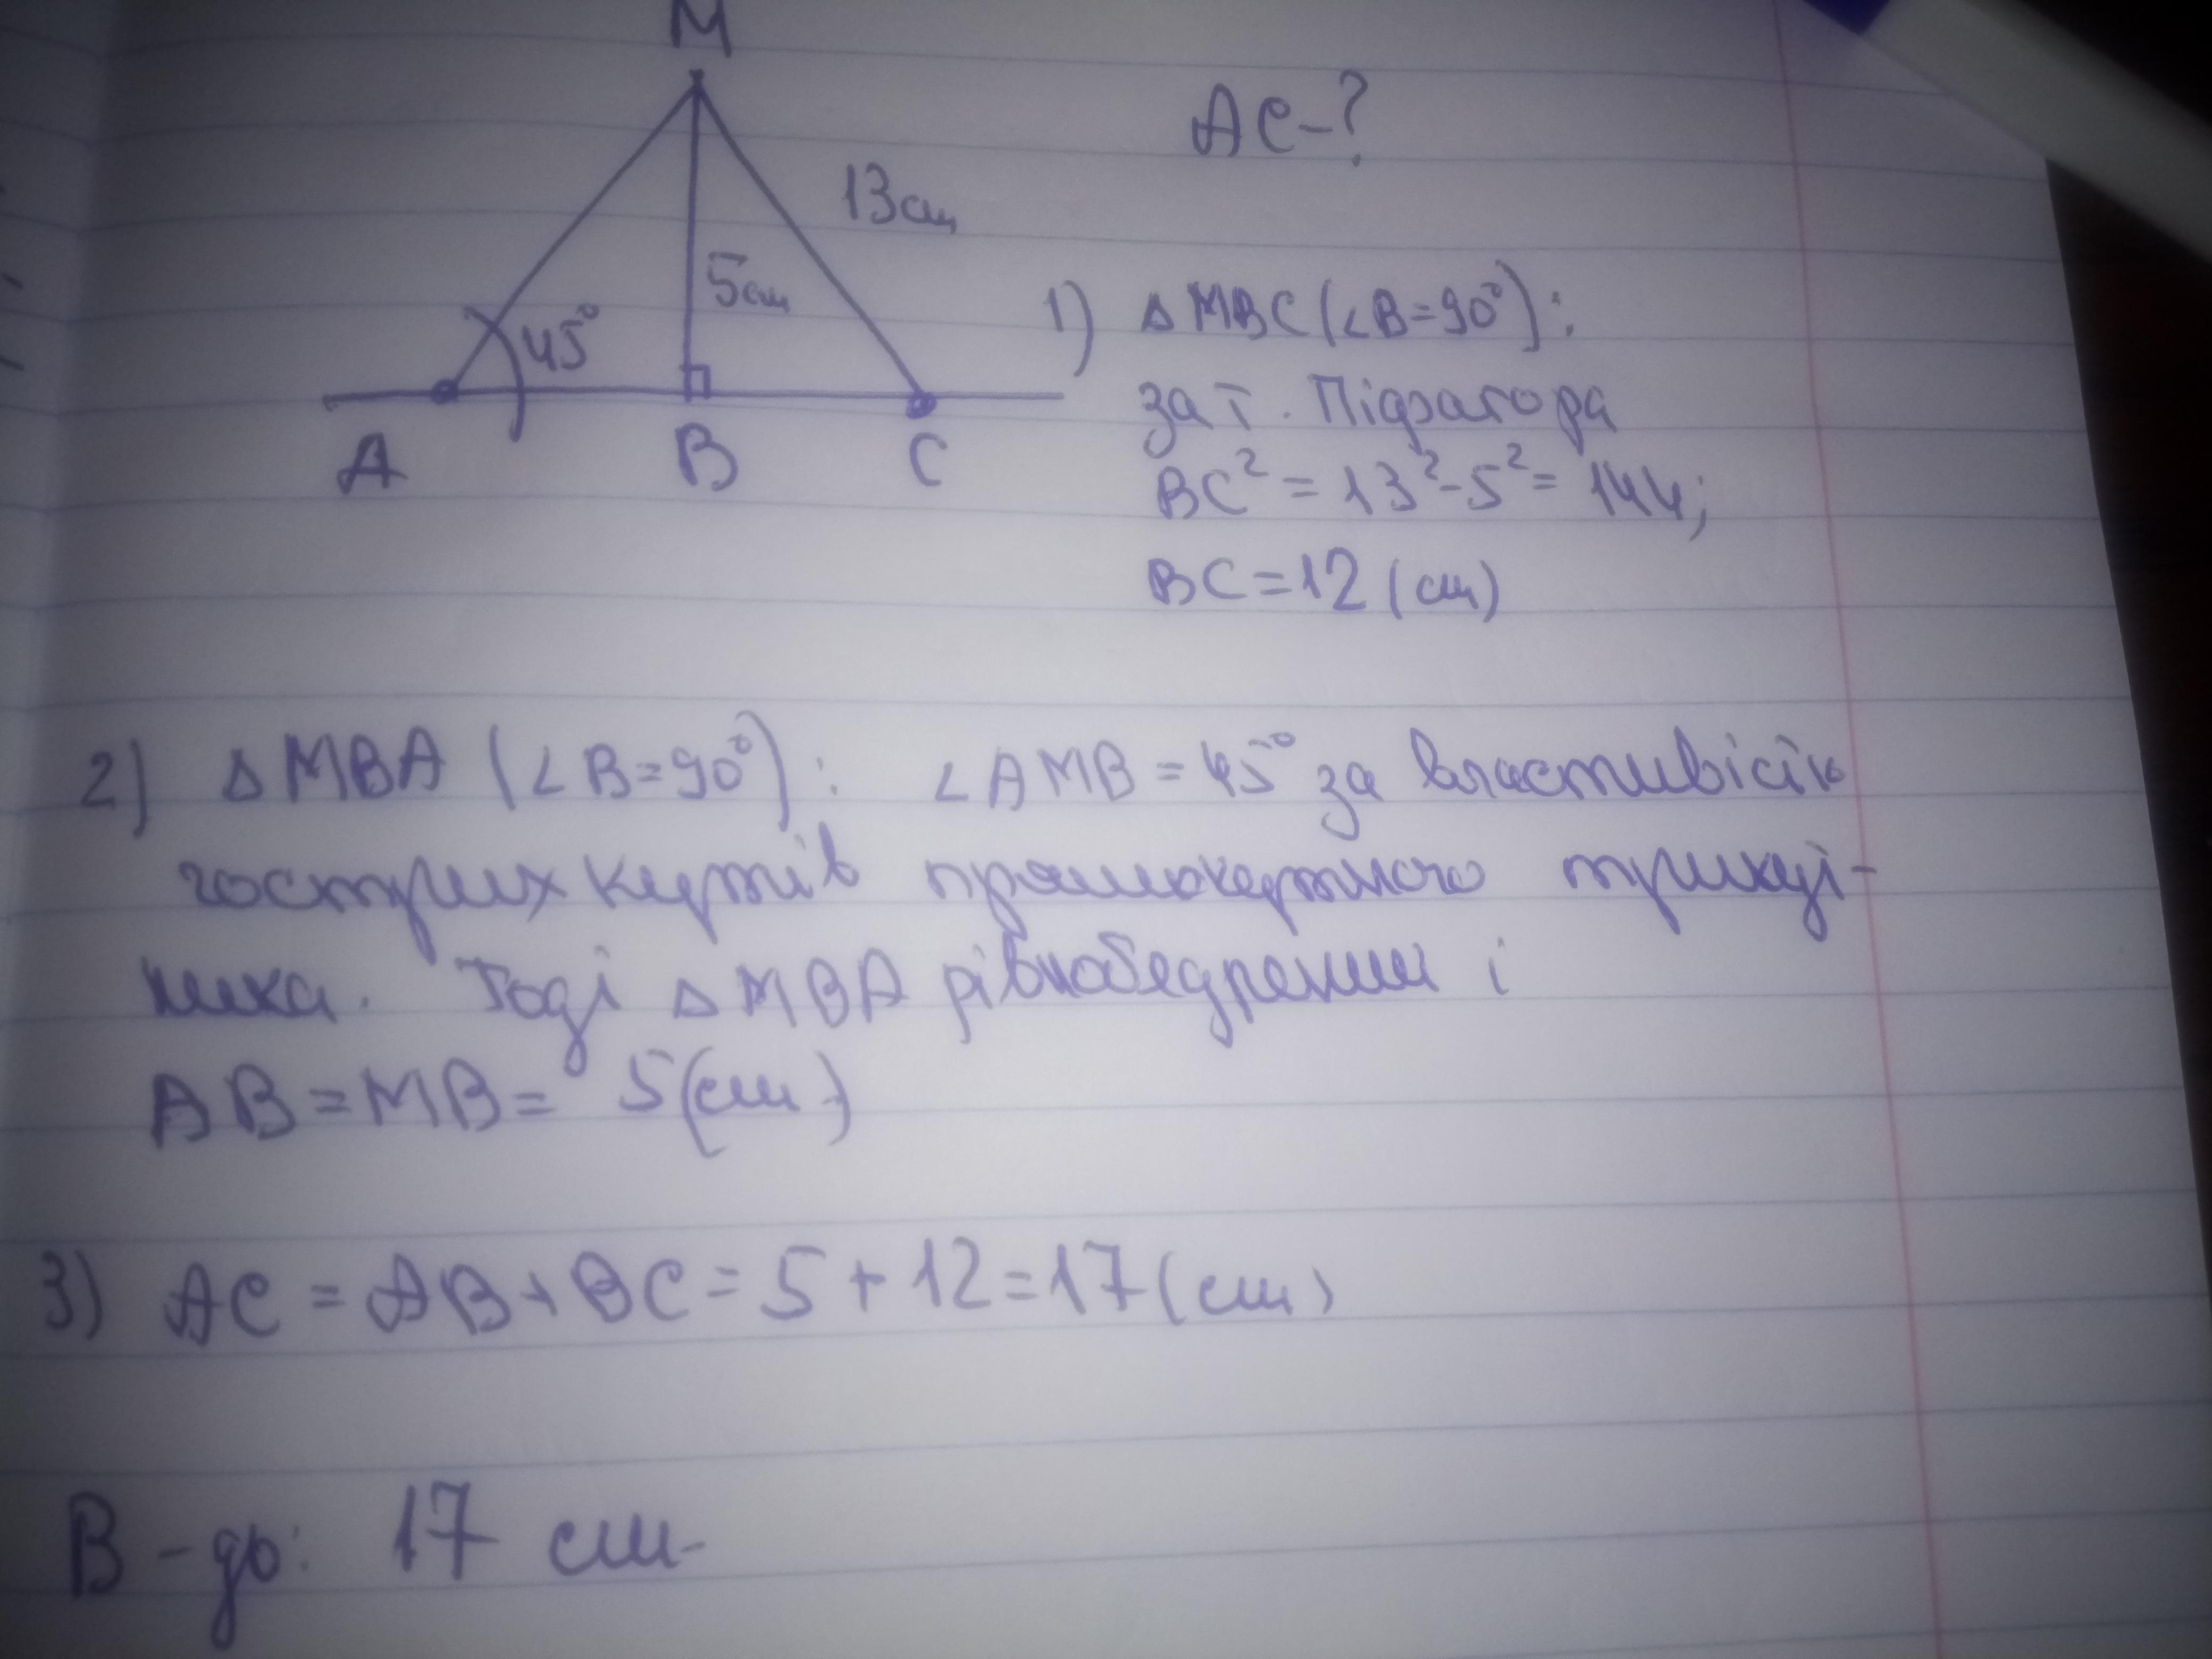 M
AC-?
13см
5см
45°
A B C
1) △MBC (∠B=90°):
за т. Піфагора
BC² = 13²-5² = 144;
BC = 12 (см)
2) △MBA (∠B=90°): ∠AMB = 45° за властивістю
гострих кутів прямокутного трикут-
ника. Тоді △MBA рівнобедрений і
AB = MB = 5(см)
3) AC = AB + BC = 5 + 12 = 17 (см)
В-дь: 17 см.